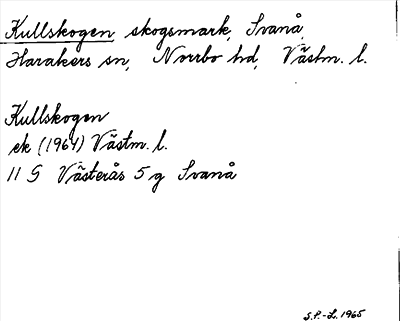 Kullskogen, skogsmark, Svanå,
Harakers sn, Norrbo hd, Västm. l.
Kullskogen
ek (1964) Västm. l.
11 G Västerås 5 g Svanå
S.P.-L. 1965